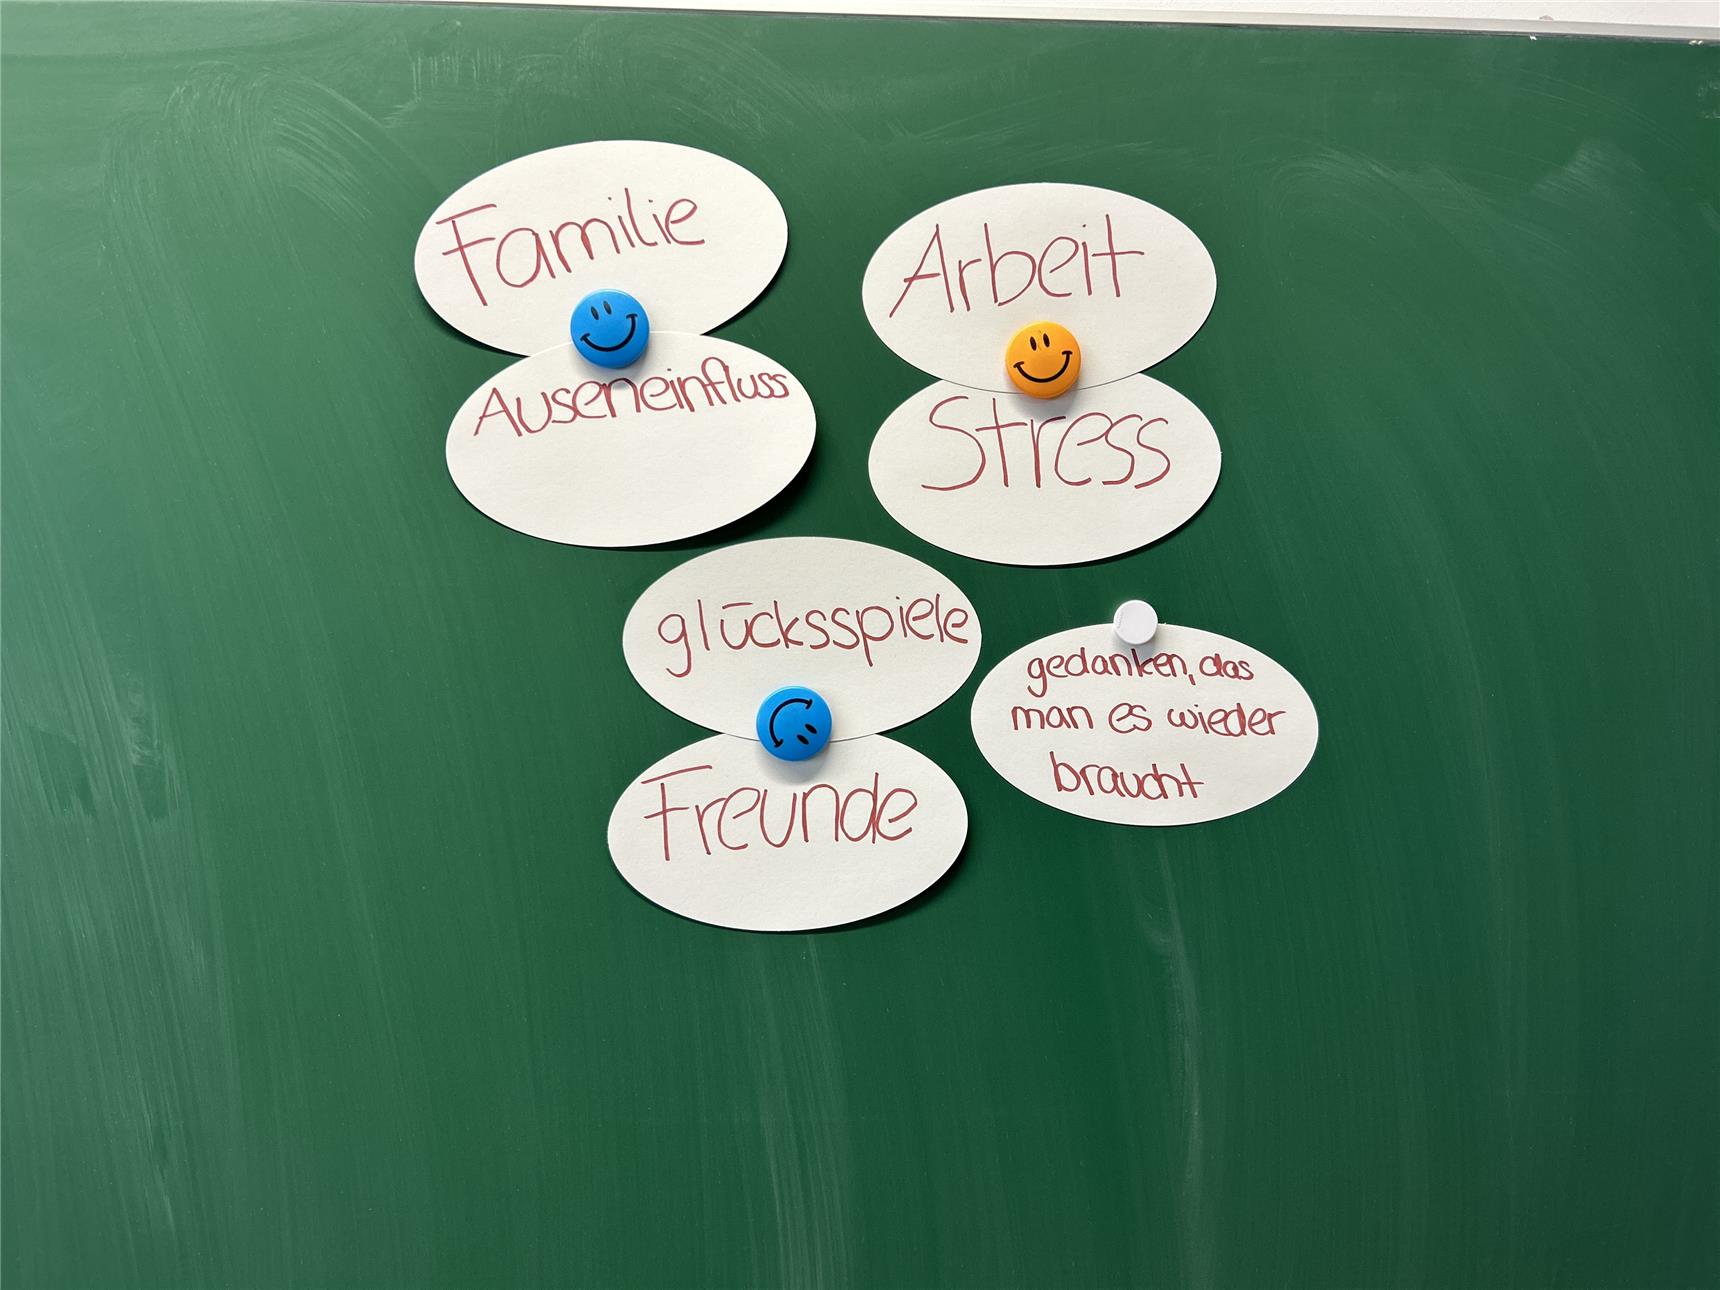 Familie
Auseneinfluss
Arbeit
Stress
glücksspiele
Freunde
gedanken, das
man es wieder
braucht